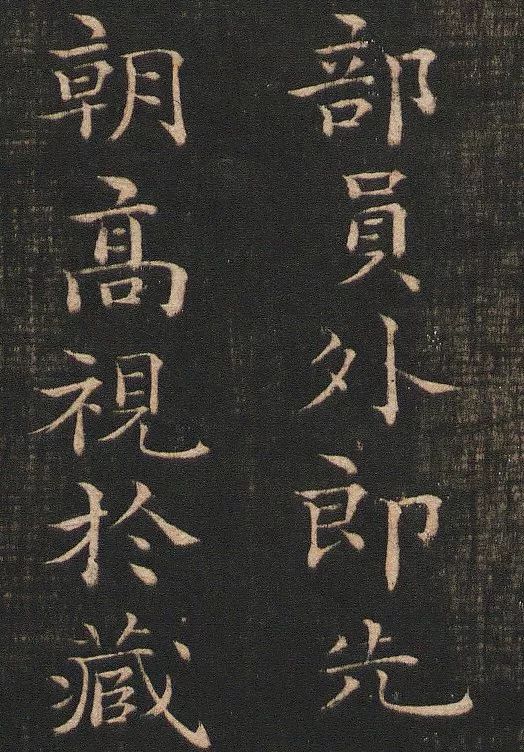 部員外郎先
朝高視於藏